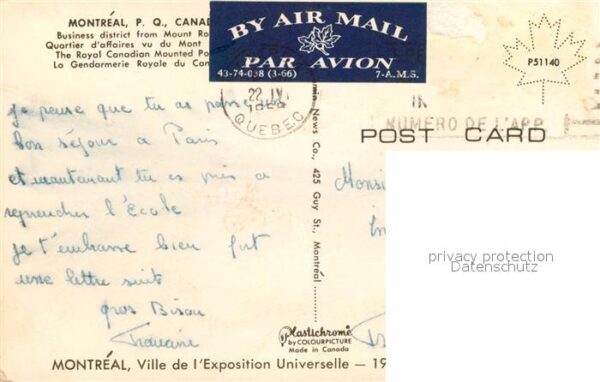 MONTRÉAL, P. Q., CANAD
Business district from Mount Ro
Quartier d'affaires vu du Mont
The Royal Canadian Mounted Po
La Gendarmerie Royale du Can
BY AIR MAIL
PAR AVION
43-74-038 (3-66)
7-A.M.S.
P51140
22 IV
QUEBEC
NUMERO DE L'APP
POST CARD
je pense que tu as passé un
bon séjour à Paris
et maintenant tu es prêt à
reprendre l'École
je t'embrasse bien fort
une lettre suit
gros Bisou
Monsi
News Co., 425 Guy St., Montréal
privacy protection
Datenschutz
Plastichrome
by COLOURPICTURE
Made in Canada
MONTRÉAL, Ville de l'Exposition Universelle — 19